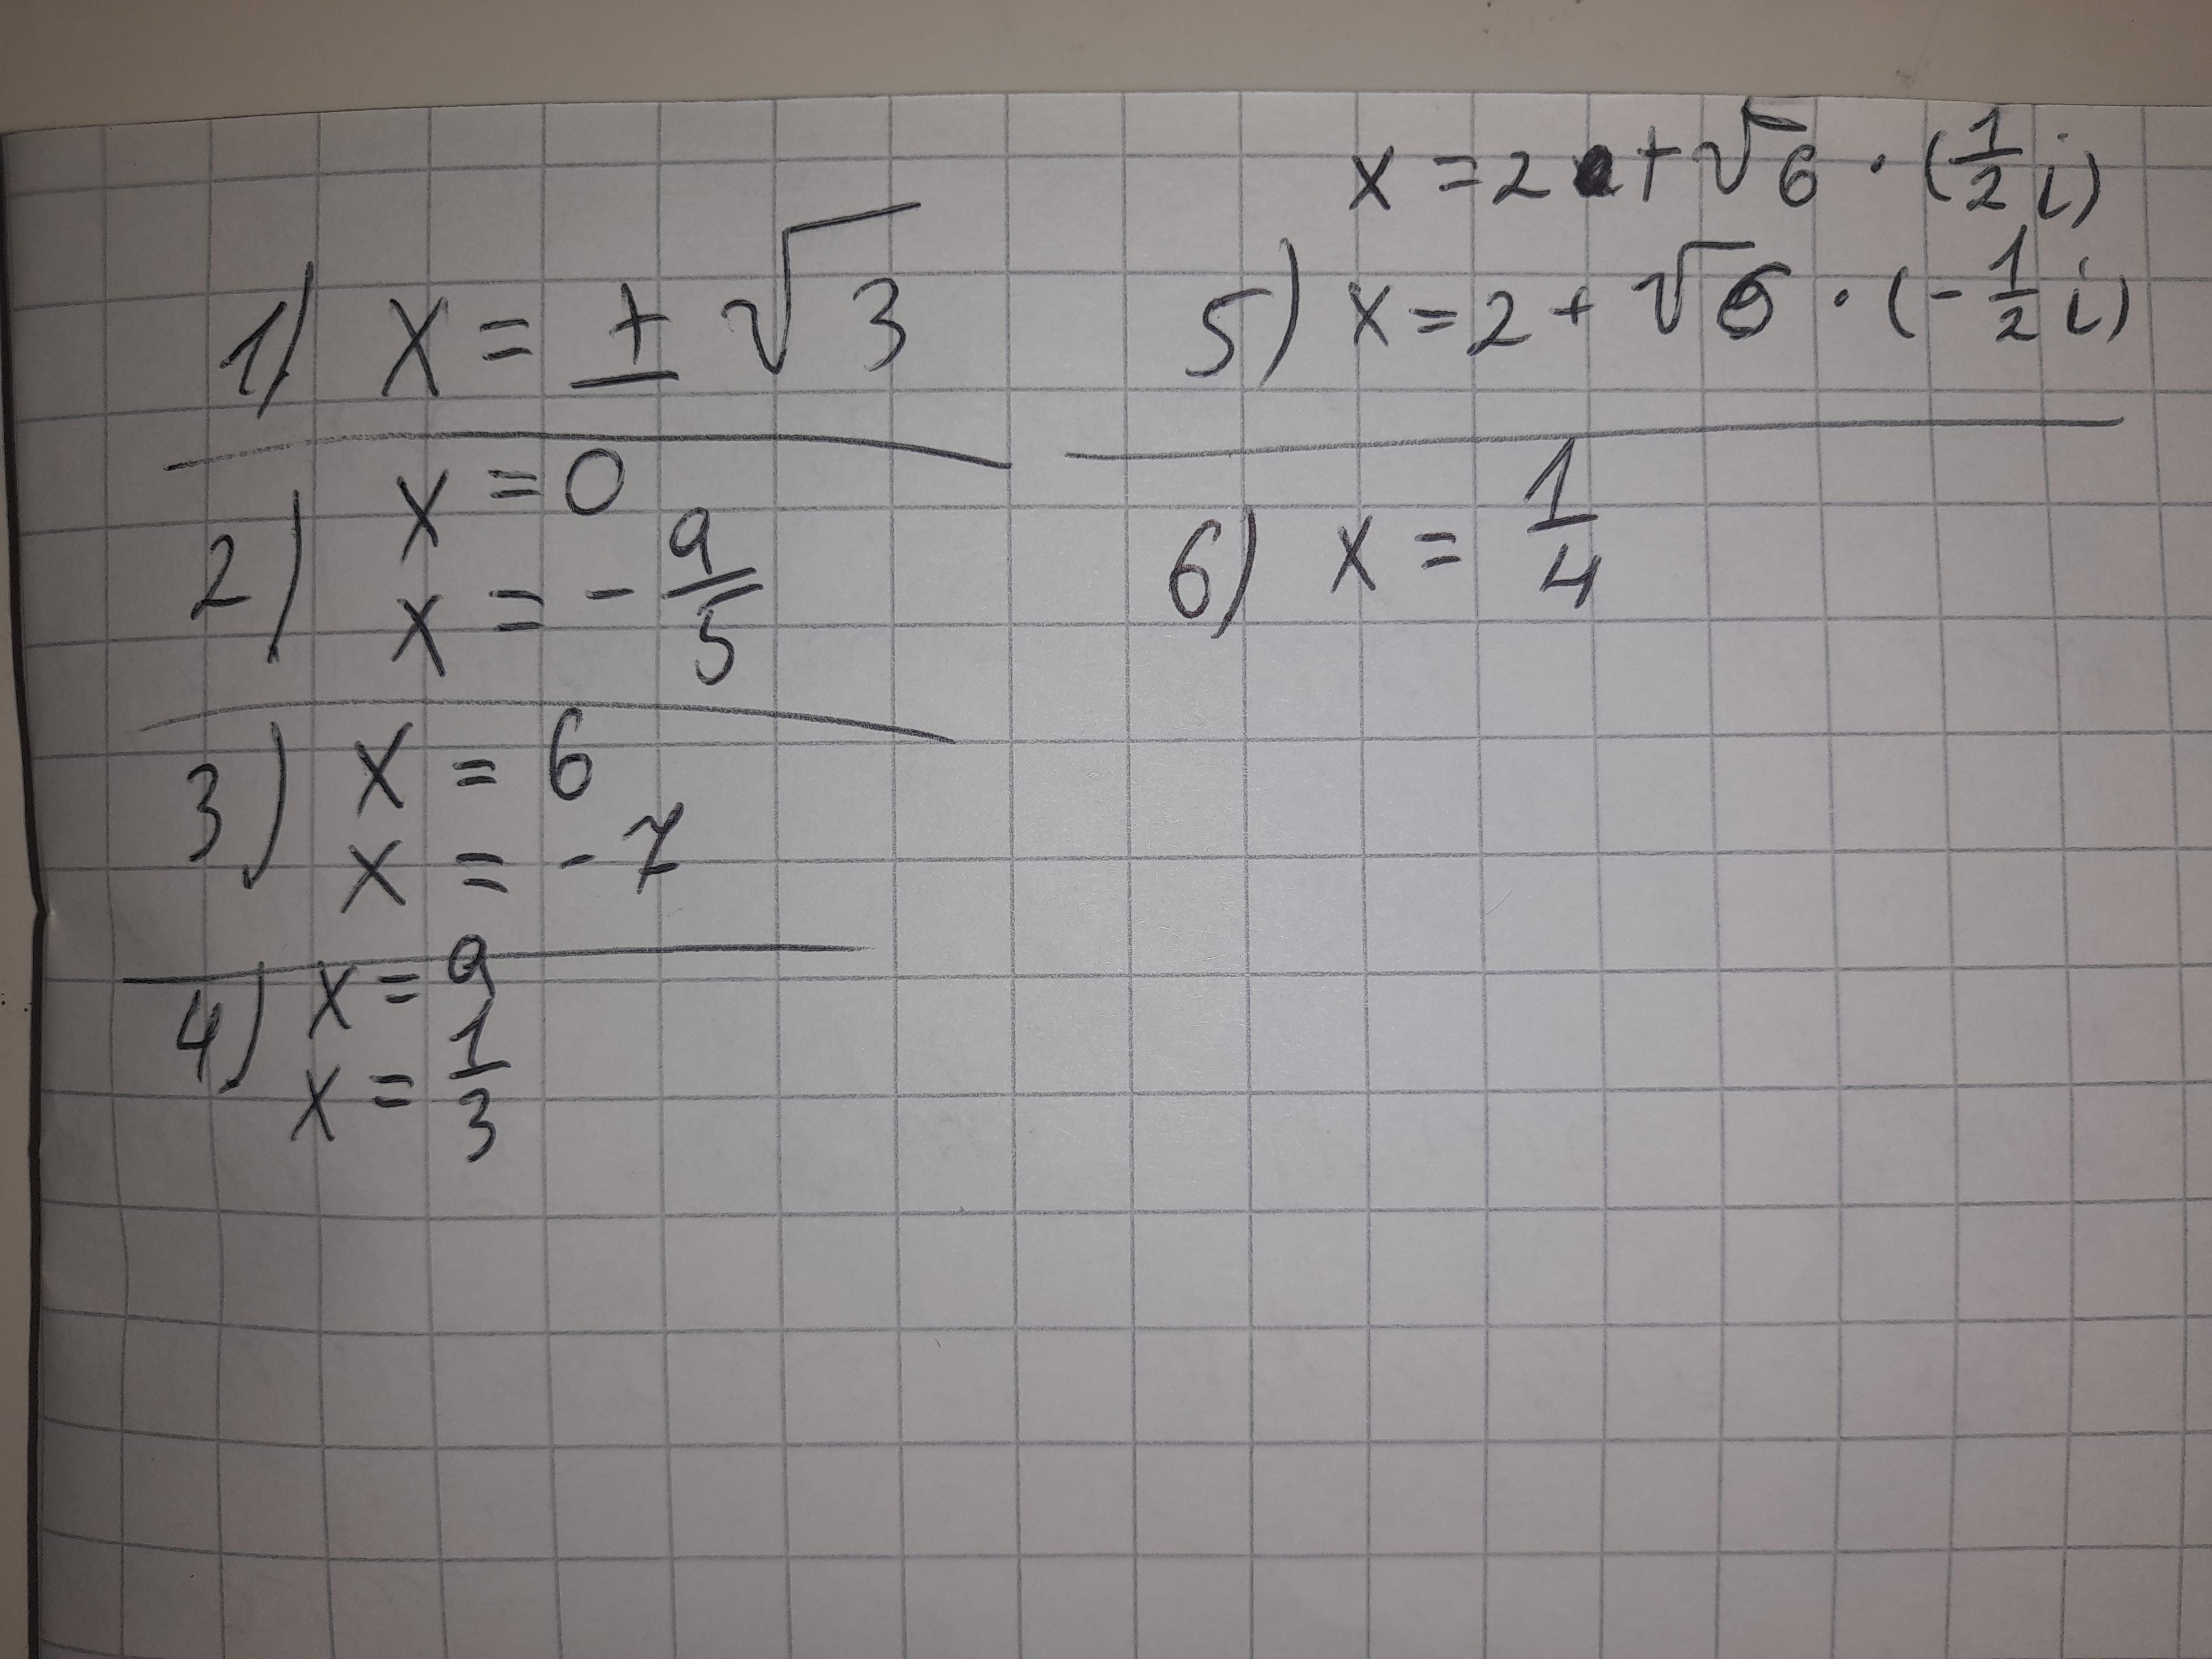 1) x = ± √3
2) x = 0
x = - 9/5
3) x = 6
x = - 7
4) x = 9
x = 1/3
x = 2 + √6 · (1/2 i)
5) x = 2 + √6 · (- 1/2 i)
6) x = 1/4